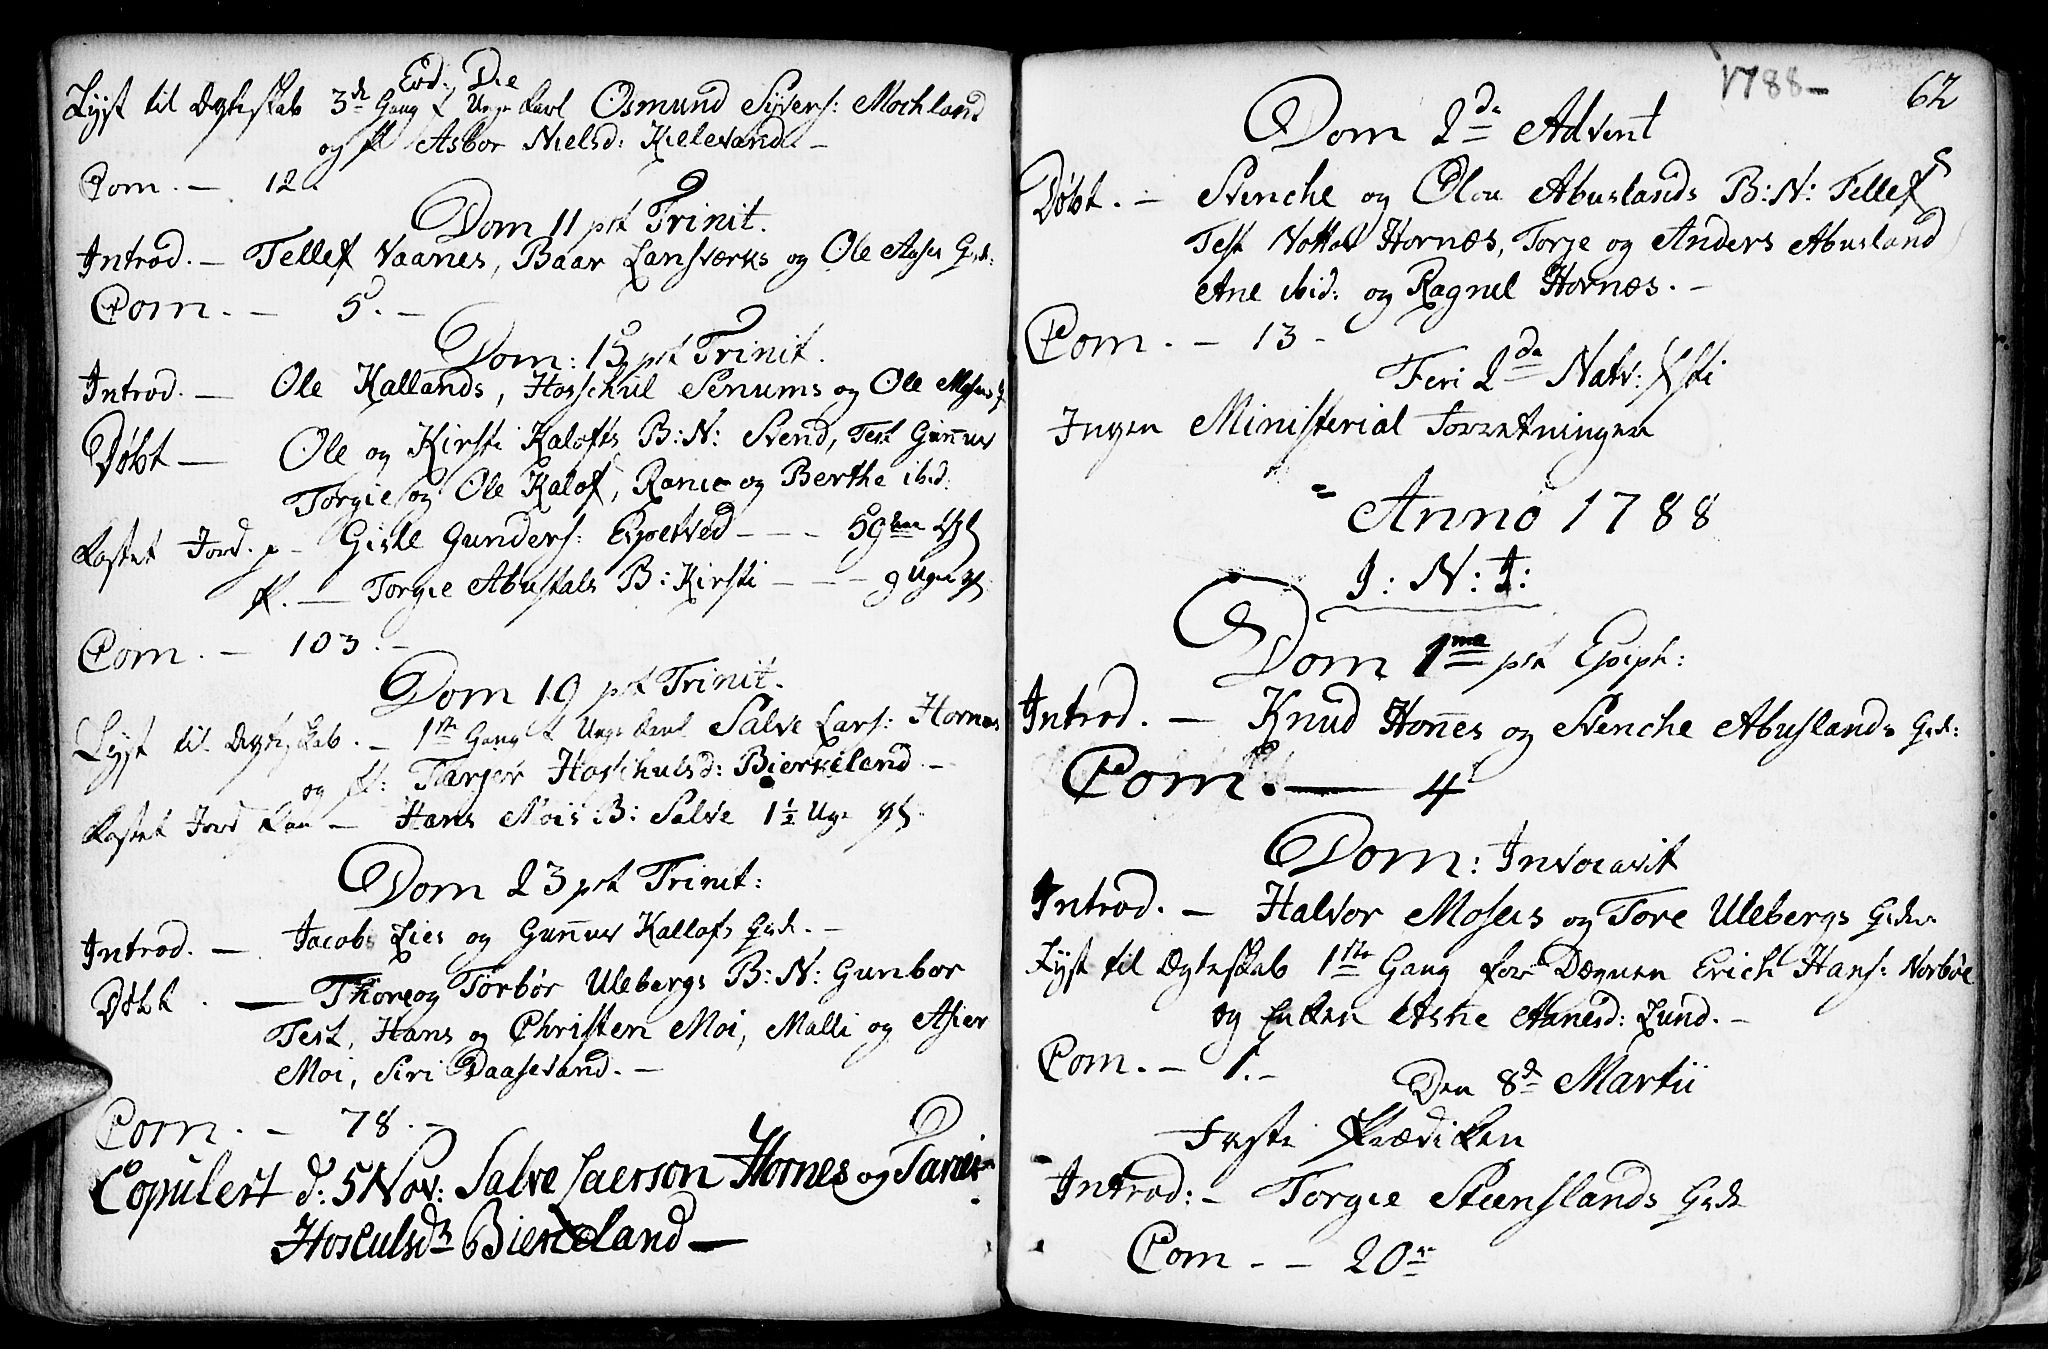 Eod: Die
Lyst til Ægteskab 3de Gang f Unge Karl Osmund Sÿvers: Mochland
og P Asbor Nielsd: Killevand. –
Com. – 12.
Dom 11 pst Trinit.
Introd. – Tellef Vaanes, Baar Lansværks og Ole Aases Qvd:
Com. – 5. –
Dom: 15 pst Trinit.
Introd. – Ole Kallands, Hoschul Senums og Ole Moseids
Døbt – Ole og Kirsti Kalofts B:N: Svend, Test Guñuf
Torgie og Ole Kalof, Ranie og Berthe ibid:
Kastet Jord. p – Gisle Gunders: Espetved – – – 59
– Torgie Abustals B: Kirsti – – – 9 Uger gl.
Com. – 103. –
Dom 19 pst Trinit.
Lyst til Ægteskab. – 1ste Gang f Unge Karl Salve Lars: Hornes
og P: Tarjer Hoschulsd: Bierkeland –
Kastet Jord Paa – Hans Mois B: Salve 1½ Uge gl.
Dom 23 pst Trinit:
Introd. – Jacob Lies og Guñuf Kallofs Qvd. –
Døbt. – Thore og Torbør Ulebergs B:N: Gunbor
Test, Hans og Christen Moi, Malli og Asier
Moi, Siri Daasevand. –
Com. – 78. –
Copulert d: 5 Nov: Salve Laerson Hornes og Tarier
Hosculsdr Bierkeland –
1788 –
62
Dom 2da Advent
Døbt. – Svenche og Olou Abuslands B:N: Tellef
Test Nottov Hornæs, Torje og Anders Abusland
Ane ibid: og Ragnil Hornæs. –
Com. – 13 –
Feri 2da Nativ: Xsti
Ingen Ministerial Forretninger
Anno 1788
I: N: I:
Dom 1ma pst Epiph:
Introd. – Knud Hoñes og Svenche Abuslands Qvd:
Com. – 4
Dom: Invocavit
Introd. – Halvor Moseis og Tore Ulebergs Qvder
Lyst til Ægteskab 1ste Gang for Dægnen Erich Hans: Norbøe
og Enken Asne Aanesd: Lund. –
Com. – 1. –
Den 8de Martii
Faste Prædiken
Introd: – Torgie Steenslands Qvde
Com – – 20